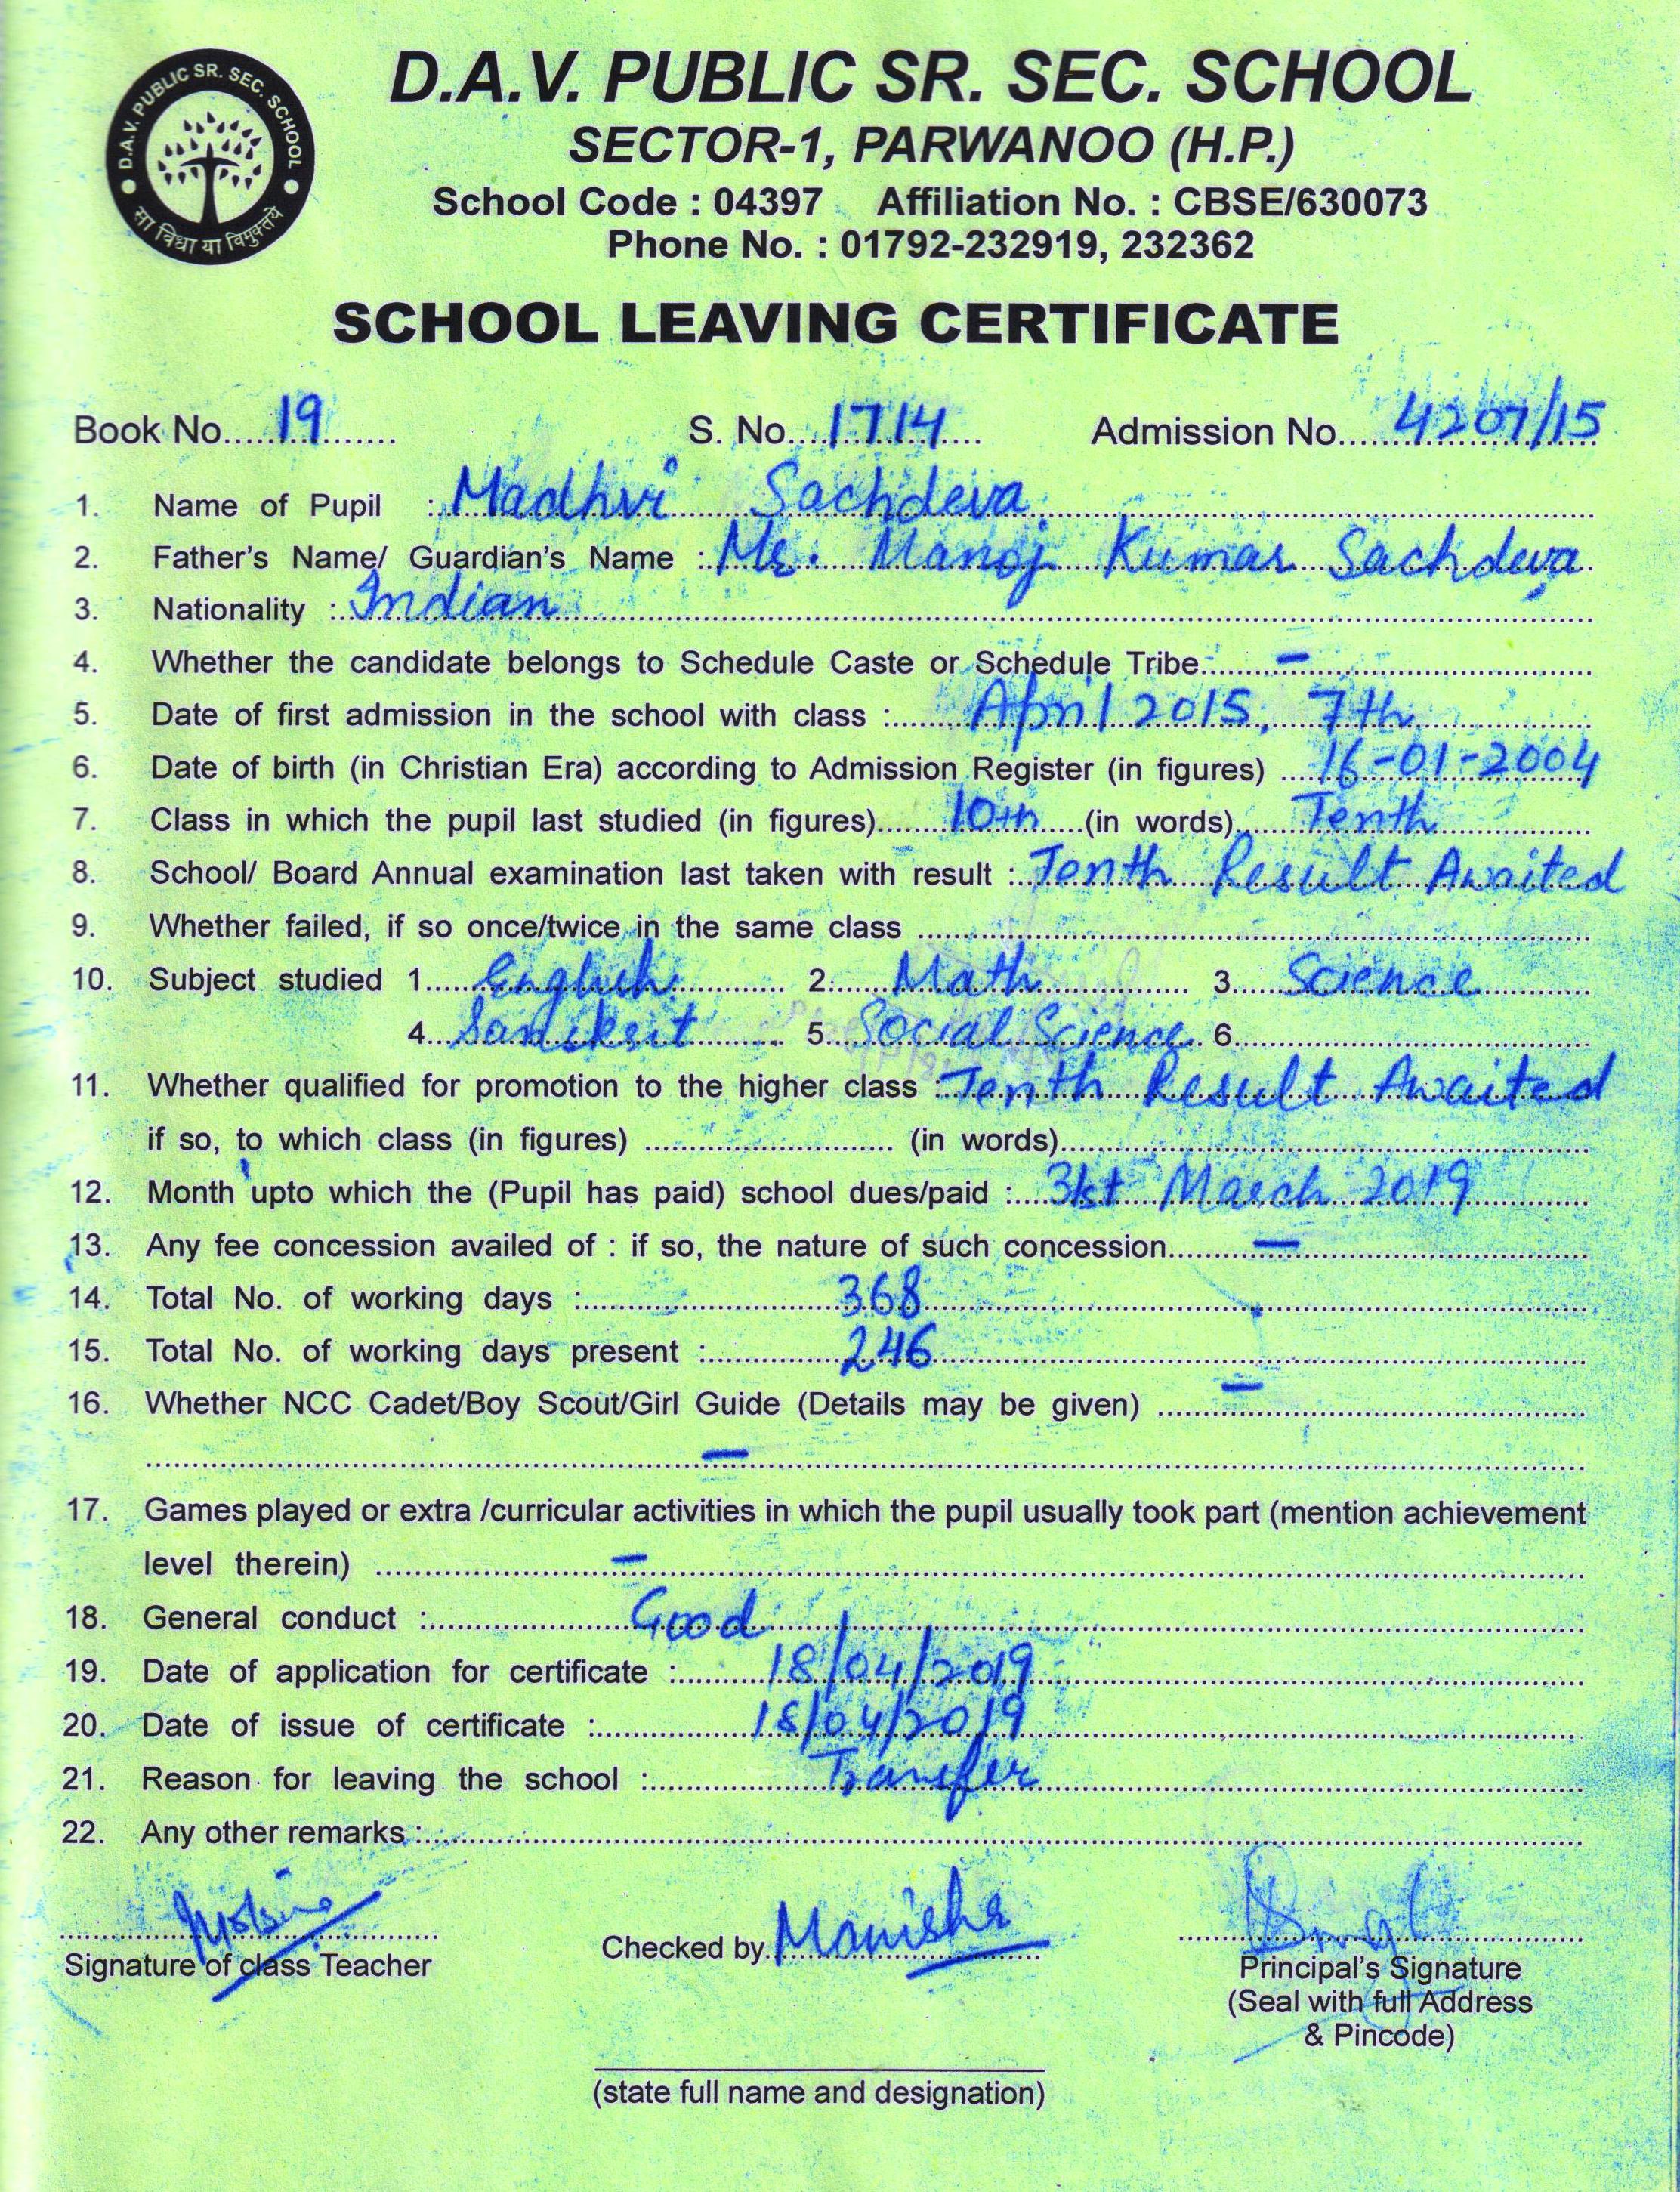 D.A.V. PUBLIC SR. SEC. SCHOOL
D.A.V. PUBLIC SR. SEC. SCHOOL
सा विद्या या विमुक्तये
SECTOR-1, PARWANOO (H.P.)
School Code : 04397 Affiliation No. : CBSE/630073
Phone No. : 01792-232919, 232362
SCHOOL LEAVING CERTIFICATE
Book No. 19 S. No. 1714 Admission No. 4207/15
1. Name of Pupil : Madhvi Sachdeva
2. Father's Name/ Guardian's Name : Mr. Manoj Kumar Sachdeva
3. Nationality : Indian
4. Whether the candidate belongs to Schedule Caste or Schedule Tribe. –
5. Date of first admission in the school with class : April 2015, 7th
6. Date of birth (in Christian Era) according to Admission Register (in figures) 16-01-2004
7. Class in which the pupil last studied (in figures) 10th (in words) Tenth
8. School/ Board Annual examination last taken with result : Tenth Result Awaited
9. Whether failed, if so once/twice in the same class
10. Subject studied 1. English 2. Math 3. Science
4. Sanskrit 5. Social Science 6.
11. Whether qualified for promotion to the higher class : Tenth Result Awaited
if so, to which class (in figures) (in words)
12. Month upto which the (Pupil has paid) school dues/paid : 31st March 2019
13. Any fee concession availed of : if so, the nature of such concession –
14. Total No. of working days : 368
15. Total No. of working days present : 246
16. Whether NCC Cadet/Boy Scout/Girl Guide (Details may be given) –
–
17. Games played or extra /curricular activities in which the pupil usually took part (mention achievement
level therein) –
18. General conduct : Good
19. Date of application for certificate : 18/04/2019
20. Date of issue of certificate : 18/04/2019
21. Reason for leaving the school : Transfer
22. Any other remarks :
Signature of class Teacher
Checked by Manisha
Principal's Signature
(Seal with full Address
& Pincode)
(state full name and designation)